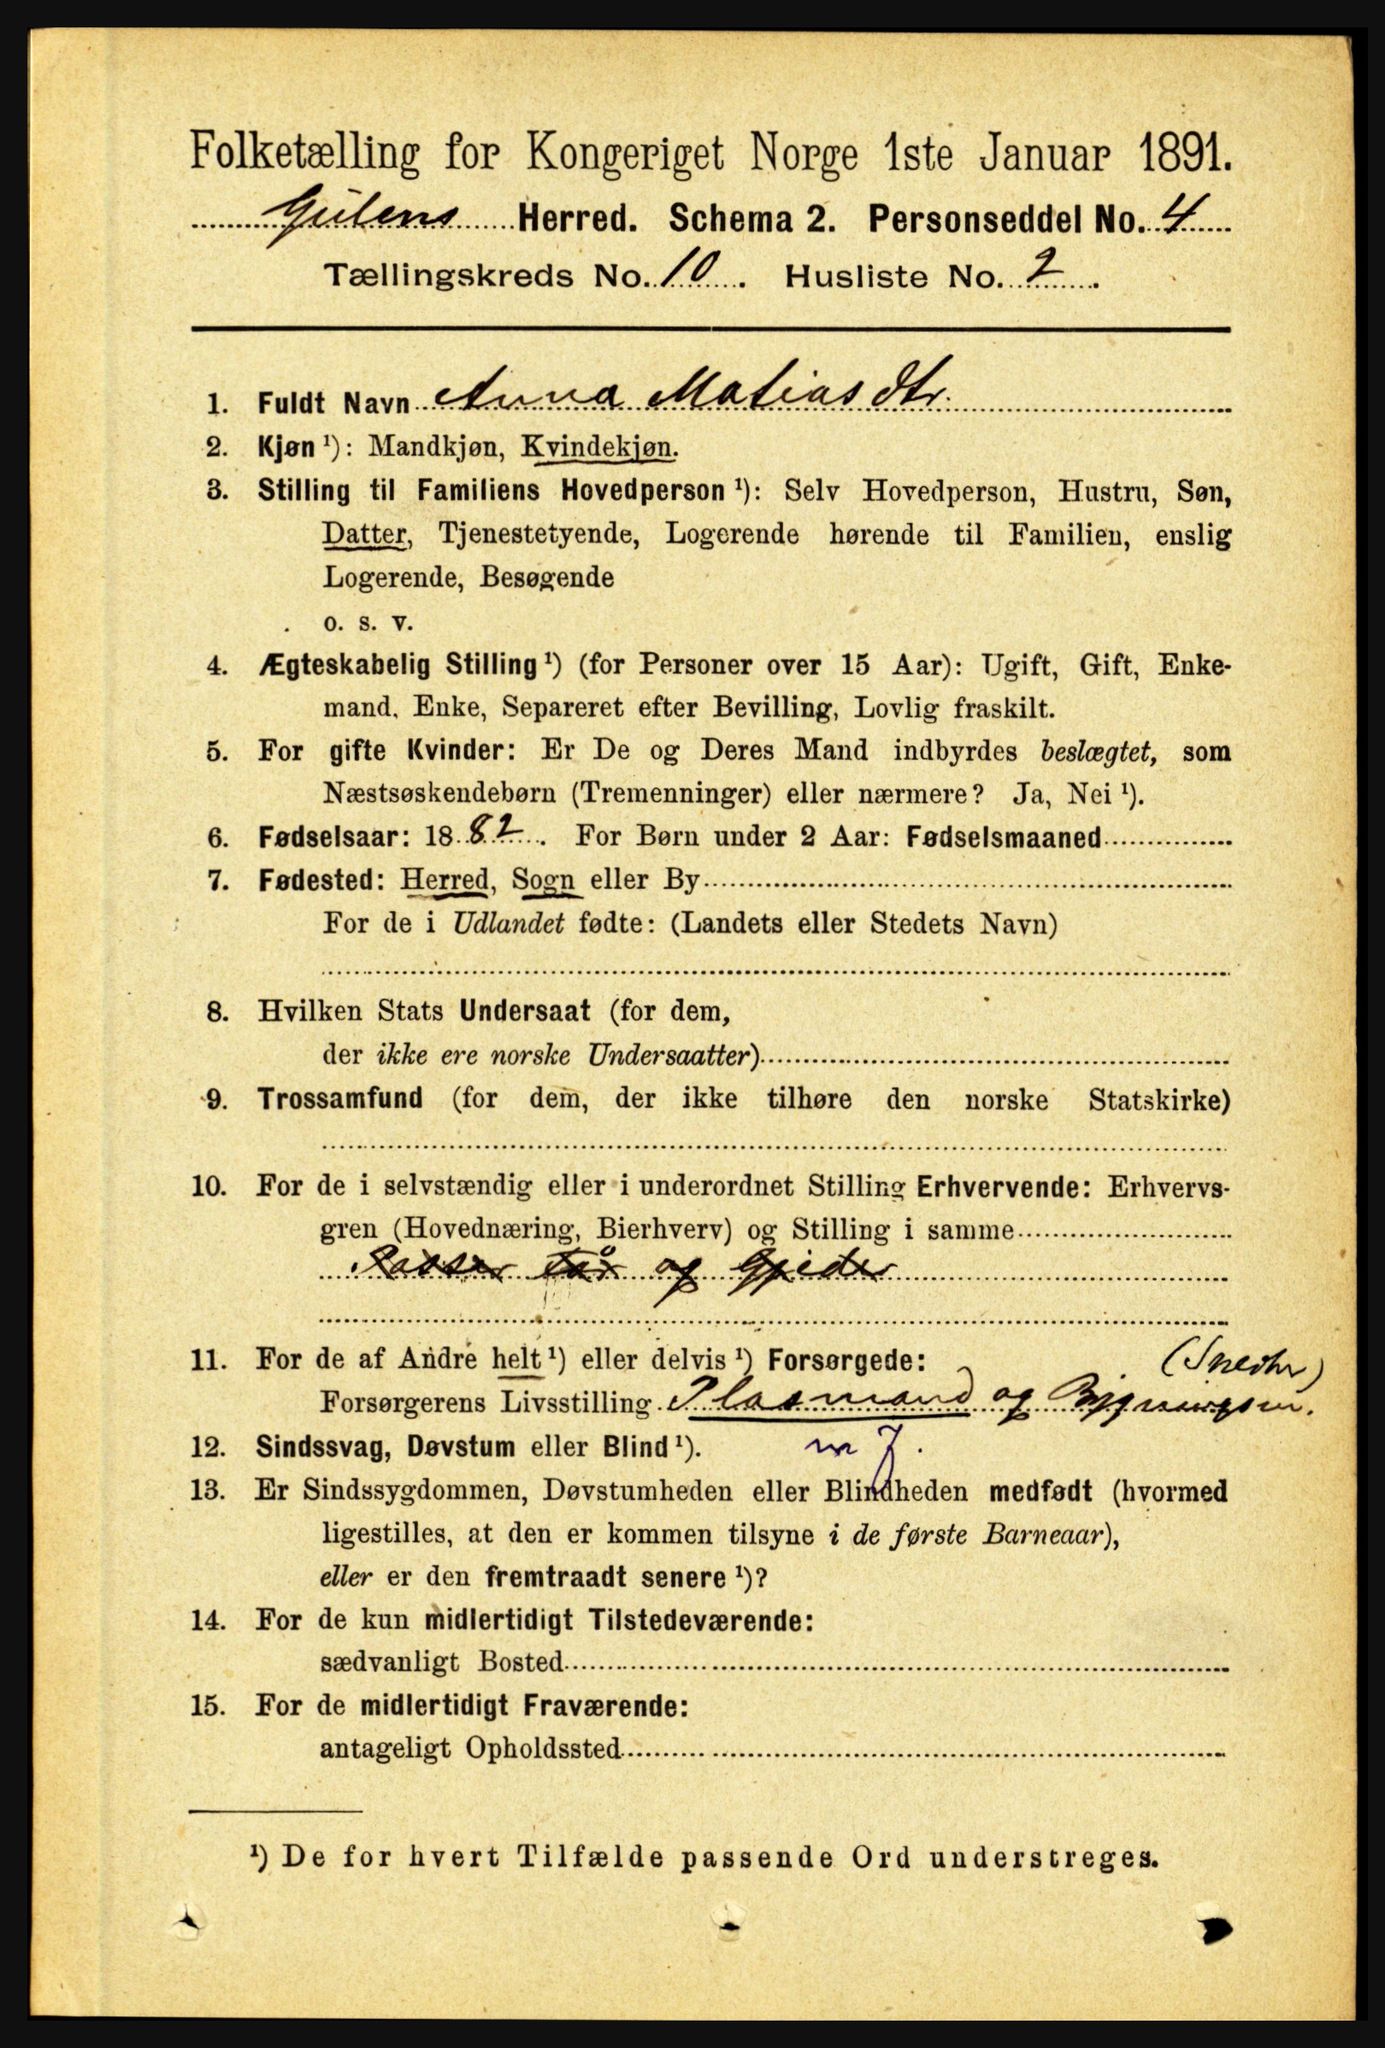 Folketælling for Kongeriget Norge 1ste Januar 1891.
Gulens Herred. Schema 2. Personseddel No. 4
Tællingskreds No. 10. Husliste No. 2.
1. Fuldt Navn Anna Matias Dtr.
2. Kjøn ¹): Mandkjøn, Kvindekjøn.
3. Stilling til Familiens Hovedperson ¹): Selv Hovedperson, Hustru, Søn,
Datter, Tjenestetyende, Logerende hørende til Familien, enslig
Logerende, Besøgende
o. s. v.
4. Ægteskabelig Stilling ¹) (for Personer over 15 Aar): Ugift, Gift, Enke-
mand, Enke, Separeret efter Bevilling, Lovlig fraskilt.
5. For gifte Kvinder: Er De og Deres Mand indbyrdes beslægtet, som
Næstsøskendebørn (Tremenninger) eller nærmere? Ja, Nei ¹).
6. Fødselsaar: 1882. For Børn under 2 Aar: Fødselsmaaned
7. Fødested: Herred, Sogn eller By
For de i Udlandet fødte: (Landets eller Stedets Navn)
8. Hvilken Stats Undersaat (for dem,
der ikke ere norske Undersaatter)
9. Trossamfund (for dem, der ikke tilhøre den norske Statskirke)
10. For de i selvstændig eller i underordnet Stilling Erhvervende: Erhvervs-
gren (Hovednæring, Bierhverv) og Stilling i samme
Passer får og Gjeder
11. For de af Andre helt ¹) eller delvis ¹) Forsørgede:
(Snedker)
Forsørgerens Livsstilling Plasmand og Bygningsm.
12. Sindssvag, Døvstum eller Blind ¹).
13. Er Sindssygdommen, Døvstumheden eller Blindheden medfødt (hvormed
ligestilles, at den er kommen tilsyne i de første Barneaar),
eller er den fremtraadt senere ¹)?
14. For de kun midlertidigt Tilstedeværende:
sædvanligt Bosted
15. For de midlertidigt Fraværende:
antageligt Opholdssted
¹) De for hvert Tilfælde passende Ord understreges.